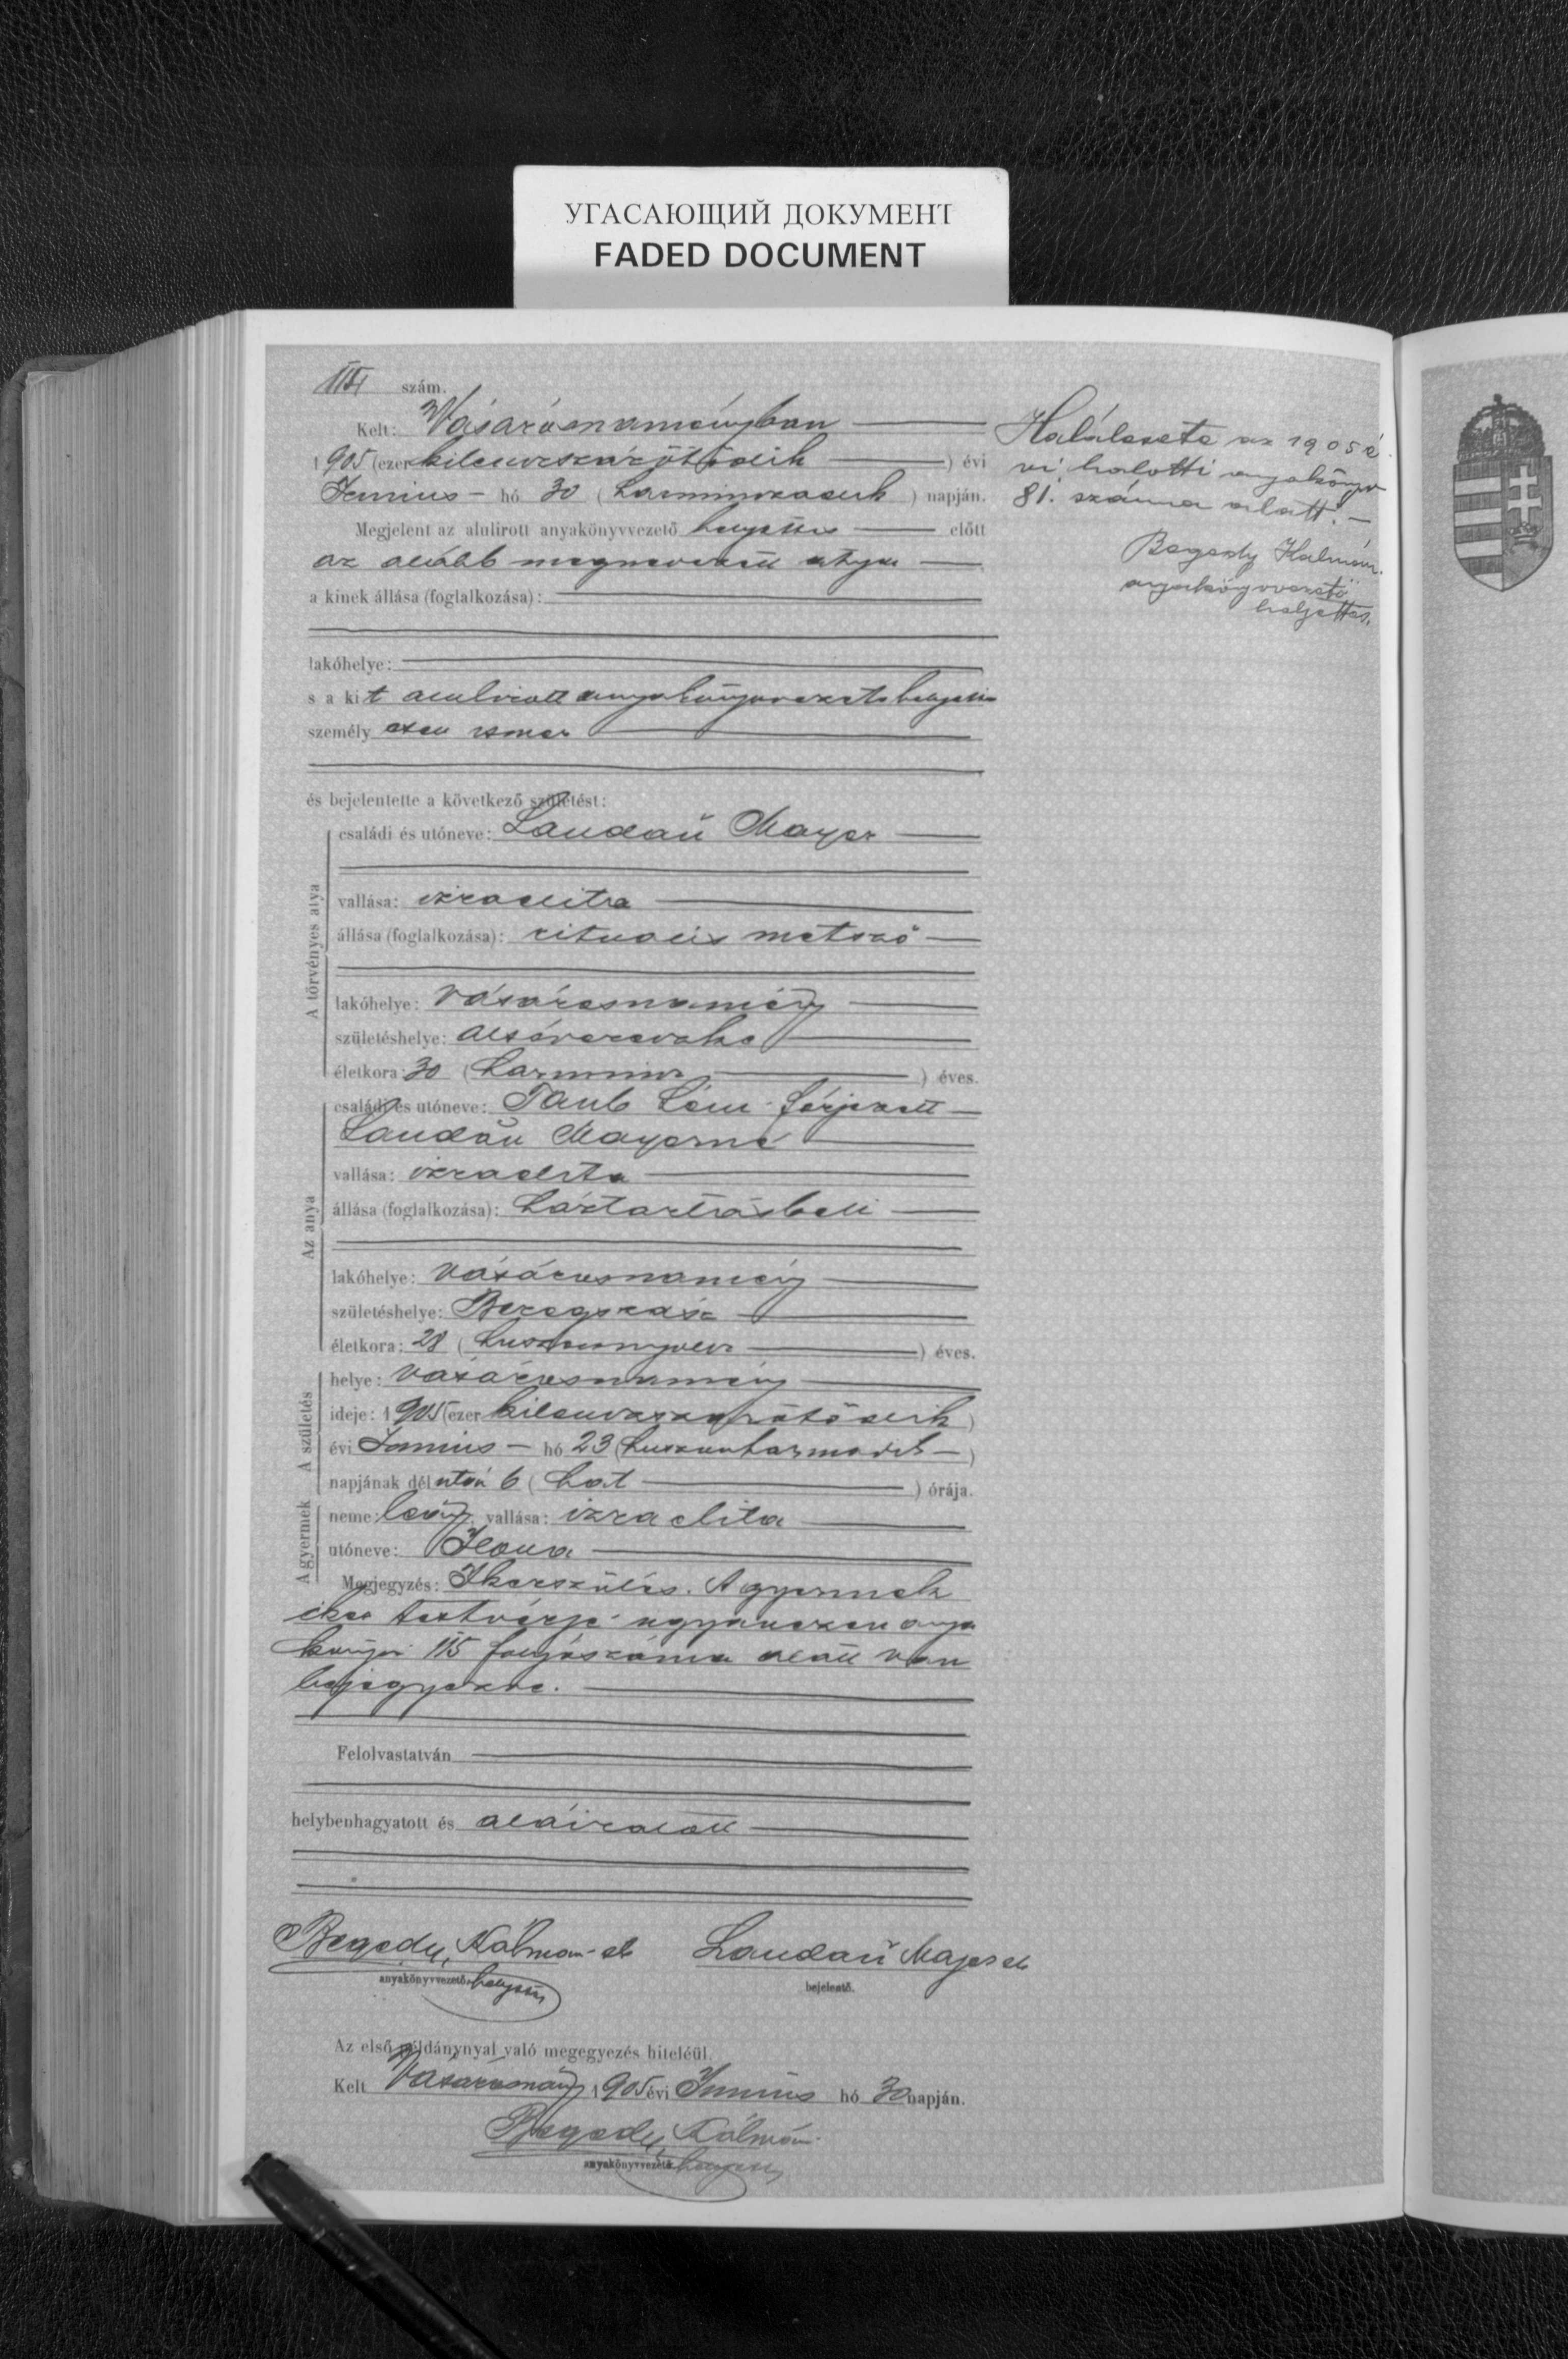 УГАСАЮЩИЙ ДОКУМЕНТ
FADED DOCUMENT
114 szám.
Kelt: Vásárosnaményban
1905 (ezer kilenczszázötödik) évi
Junius hó 30 (harminczadik) napján.
Megjelent az alulirott anyakönyvvezető helyettes előtt
az alább megnevezett atya
a kinek állása (foglalkozása):
lakóhelye:
s a kit alulirott anyakönyvvezető helyettes
személyesen ismer
és bejelentette a következő születést:
A törvényes atya
családi és utóneve: Landaū Mayer
vallása: izraelita
állása (foglalkozása): rituális metsző
lakóhelye: Vásárosnamény
születéshelye: Alsóvereczke
életkora: 30 (harmincz) éves.
Az anya
családi és utóneve: Taub Léni férjezett
Landaū Mayerné
vallása: izraelita
állása (foglalkozása): háztartásbeli
lakóhelye: Vásárosnamény
születéshelye: Beregszász
életkora: 28 (huszonnyolcz) éves.
A születés
helye: Vásárosnamény
ideje: 1905 (ezer kilenczszázötödik)
évi Junius hó 23 (huszonharmadik)
napjának délután 6 (hat) órája.
A gyermek
neme: leány, vallása: izraelita
utóneve: Ilona
Megjegyzés: Ikerszülés. A gyermek
iker testvérje ugyanezen anya
könyv 115 folyószáma alatt van
bejegyezve.
Felolvastatván
helybenhagyatott és aláiratott
Begedy Kálmán Landaū Majer
anyakönyvvezető helyettes bejelentő.
Az első példánynyal való megegyezés hiteléül.
Kelt Vásárosnamény 1905 évi Junius hó 30 napján.
Begedy Kálmán
anyakönyvvezető helyettes
Halálesete az 1905 é
vi halotti anyakönyv
81. száma alatt. —
Begedy Kálmán
anyakönyvvezető
helyettes.